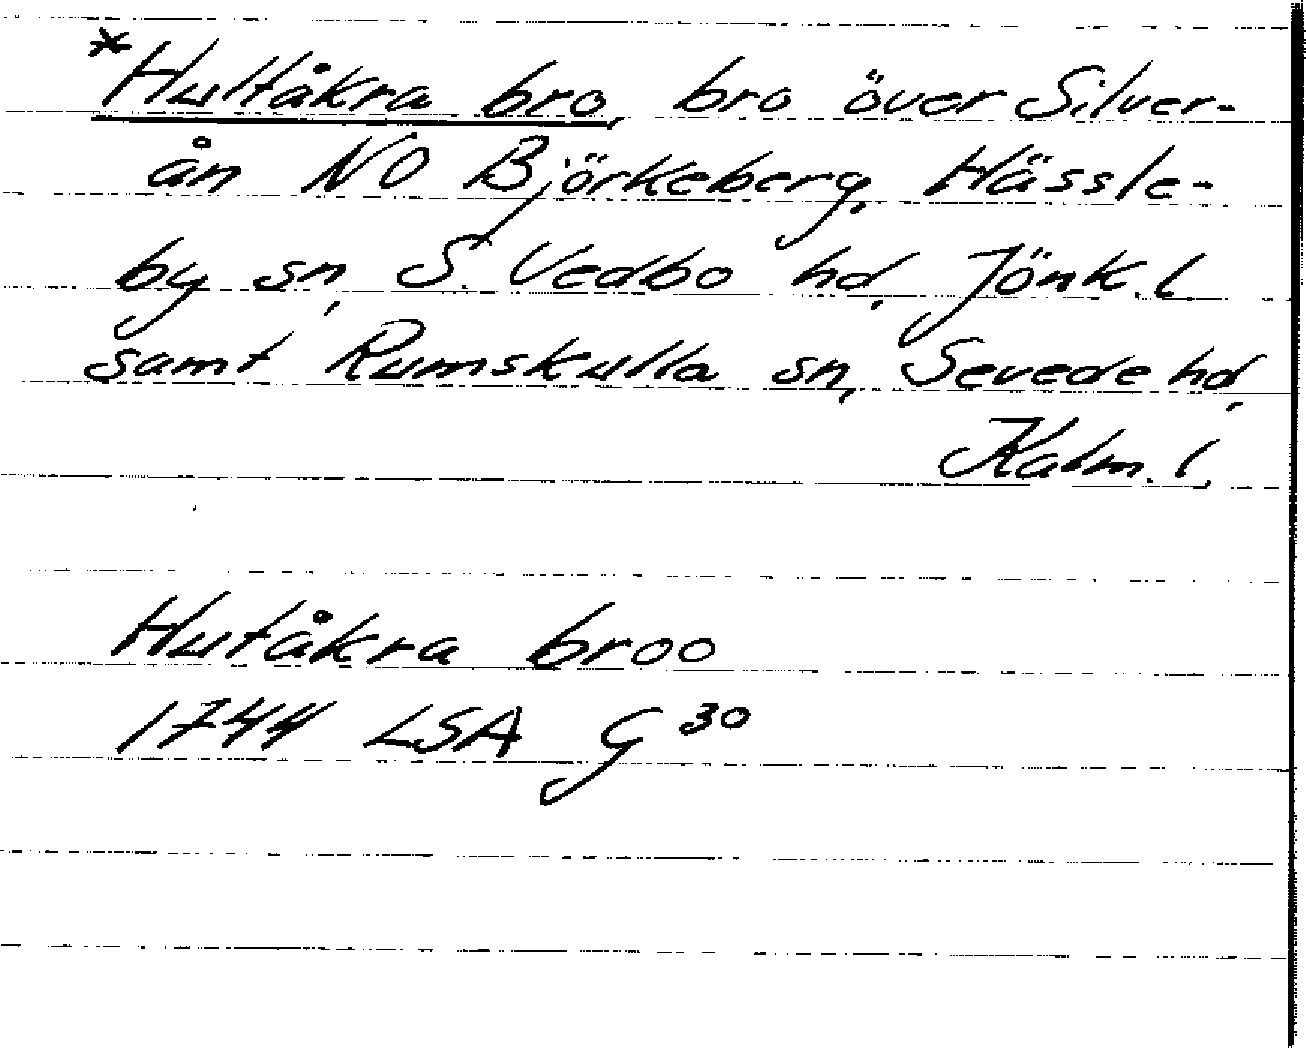 *Hultåkra bro, bro över Silver-
ån NO Björkeberg, Hässle-
by sn, S. Vedbo hd, Jönk. l
samt Rumskulla sn, Sevede hd,
Kalm. l.
Hutåkra broo
1744 LSA G 30